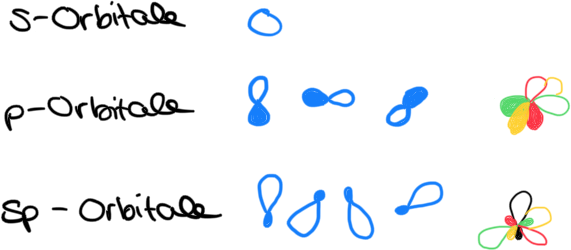 s-Orbitale
p-Orbitale
sp - Orbitale